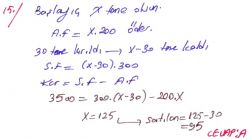 15.) Başlangıç X tane olsun.
A.f = X.200 öder.
30 tane kırıldı → x-30 tane kaldı
S.f = (x-30).300
Kar = S.f - A.f
3500 = 300.(x-30) - 200.X
X = 125 → satılan = 125-30
= 95
CEVAP: A